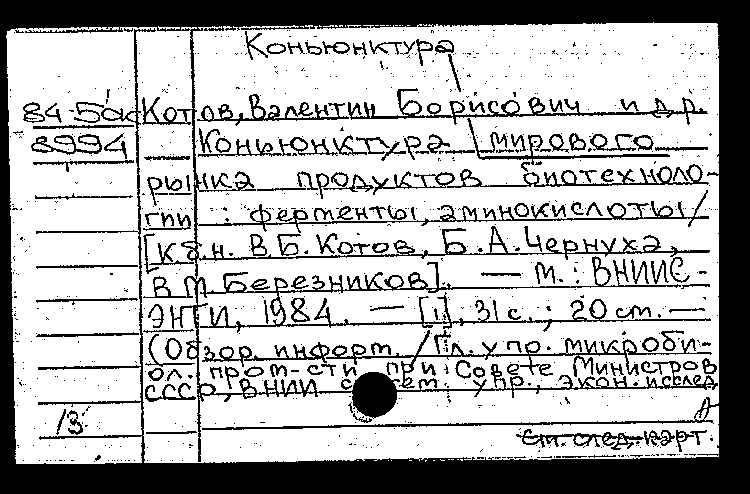 Коньюнктура
84-5ак Котов, Валентин Борисович и др.
8994 Коньюнктура мирового
рынка продуктов биотехноло-
гии : ферменты, аминокислоты /
[к.э.н. В.Б. Котов, Б.А. Чернуха,
В.М. Березников]. — М. : ВНИИС-
ЭНТИ, 1984. — [1], 31 с. ; 20 см. —
(Обзор. информ. / Гл. упр. микроби-
ол. пром-сти при Совете Министров
СССР, ВНИИ систем. упр., экон. исслед
13 А
См. след. карт.